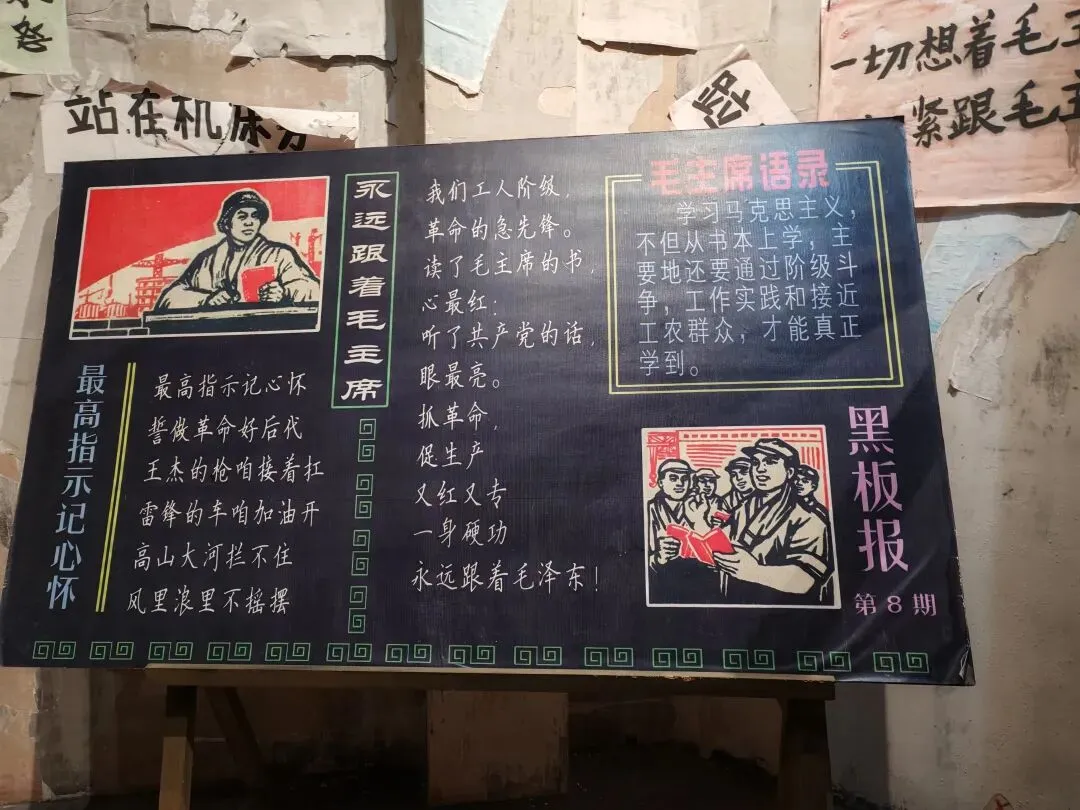 站在机床旁
一切想着毛主
紧跟毛主
永远跟着毛主席
最高指示记心怀
最高指示记心怀
誓做革命好后代
王杰的枪咱接着扛
雷锋的车咱加油开
高山大河拦不住
风里浪里不摇摆
我们工人阶级，
革命的急先锋。
读了毛主席的书，
心最红：
听了共产党的话，
眼最亮。
抓革命，
促生产
又红又专
一身硬功
永远跟着毛泽东！
毛主席语录
学习马克思主义，
不但从书本上学，主
要地还要通过阶级斗
争，工作实践和接近
工农群众，才能真正
学到。
黑板报
第8期